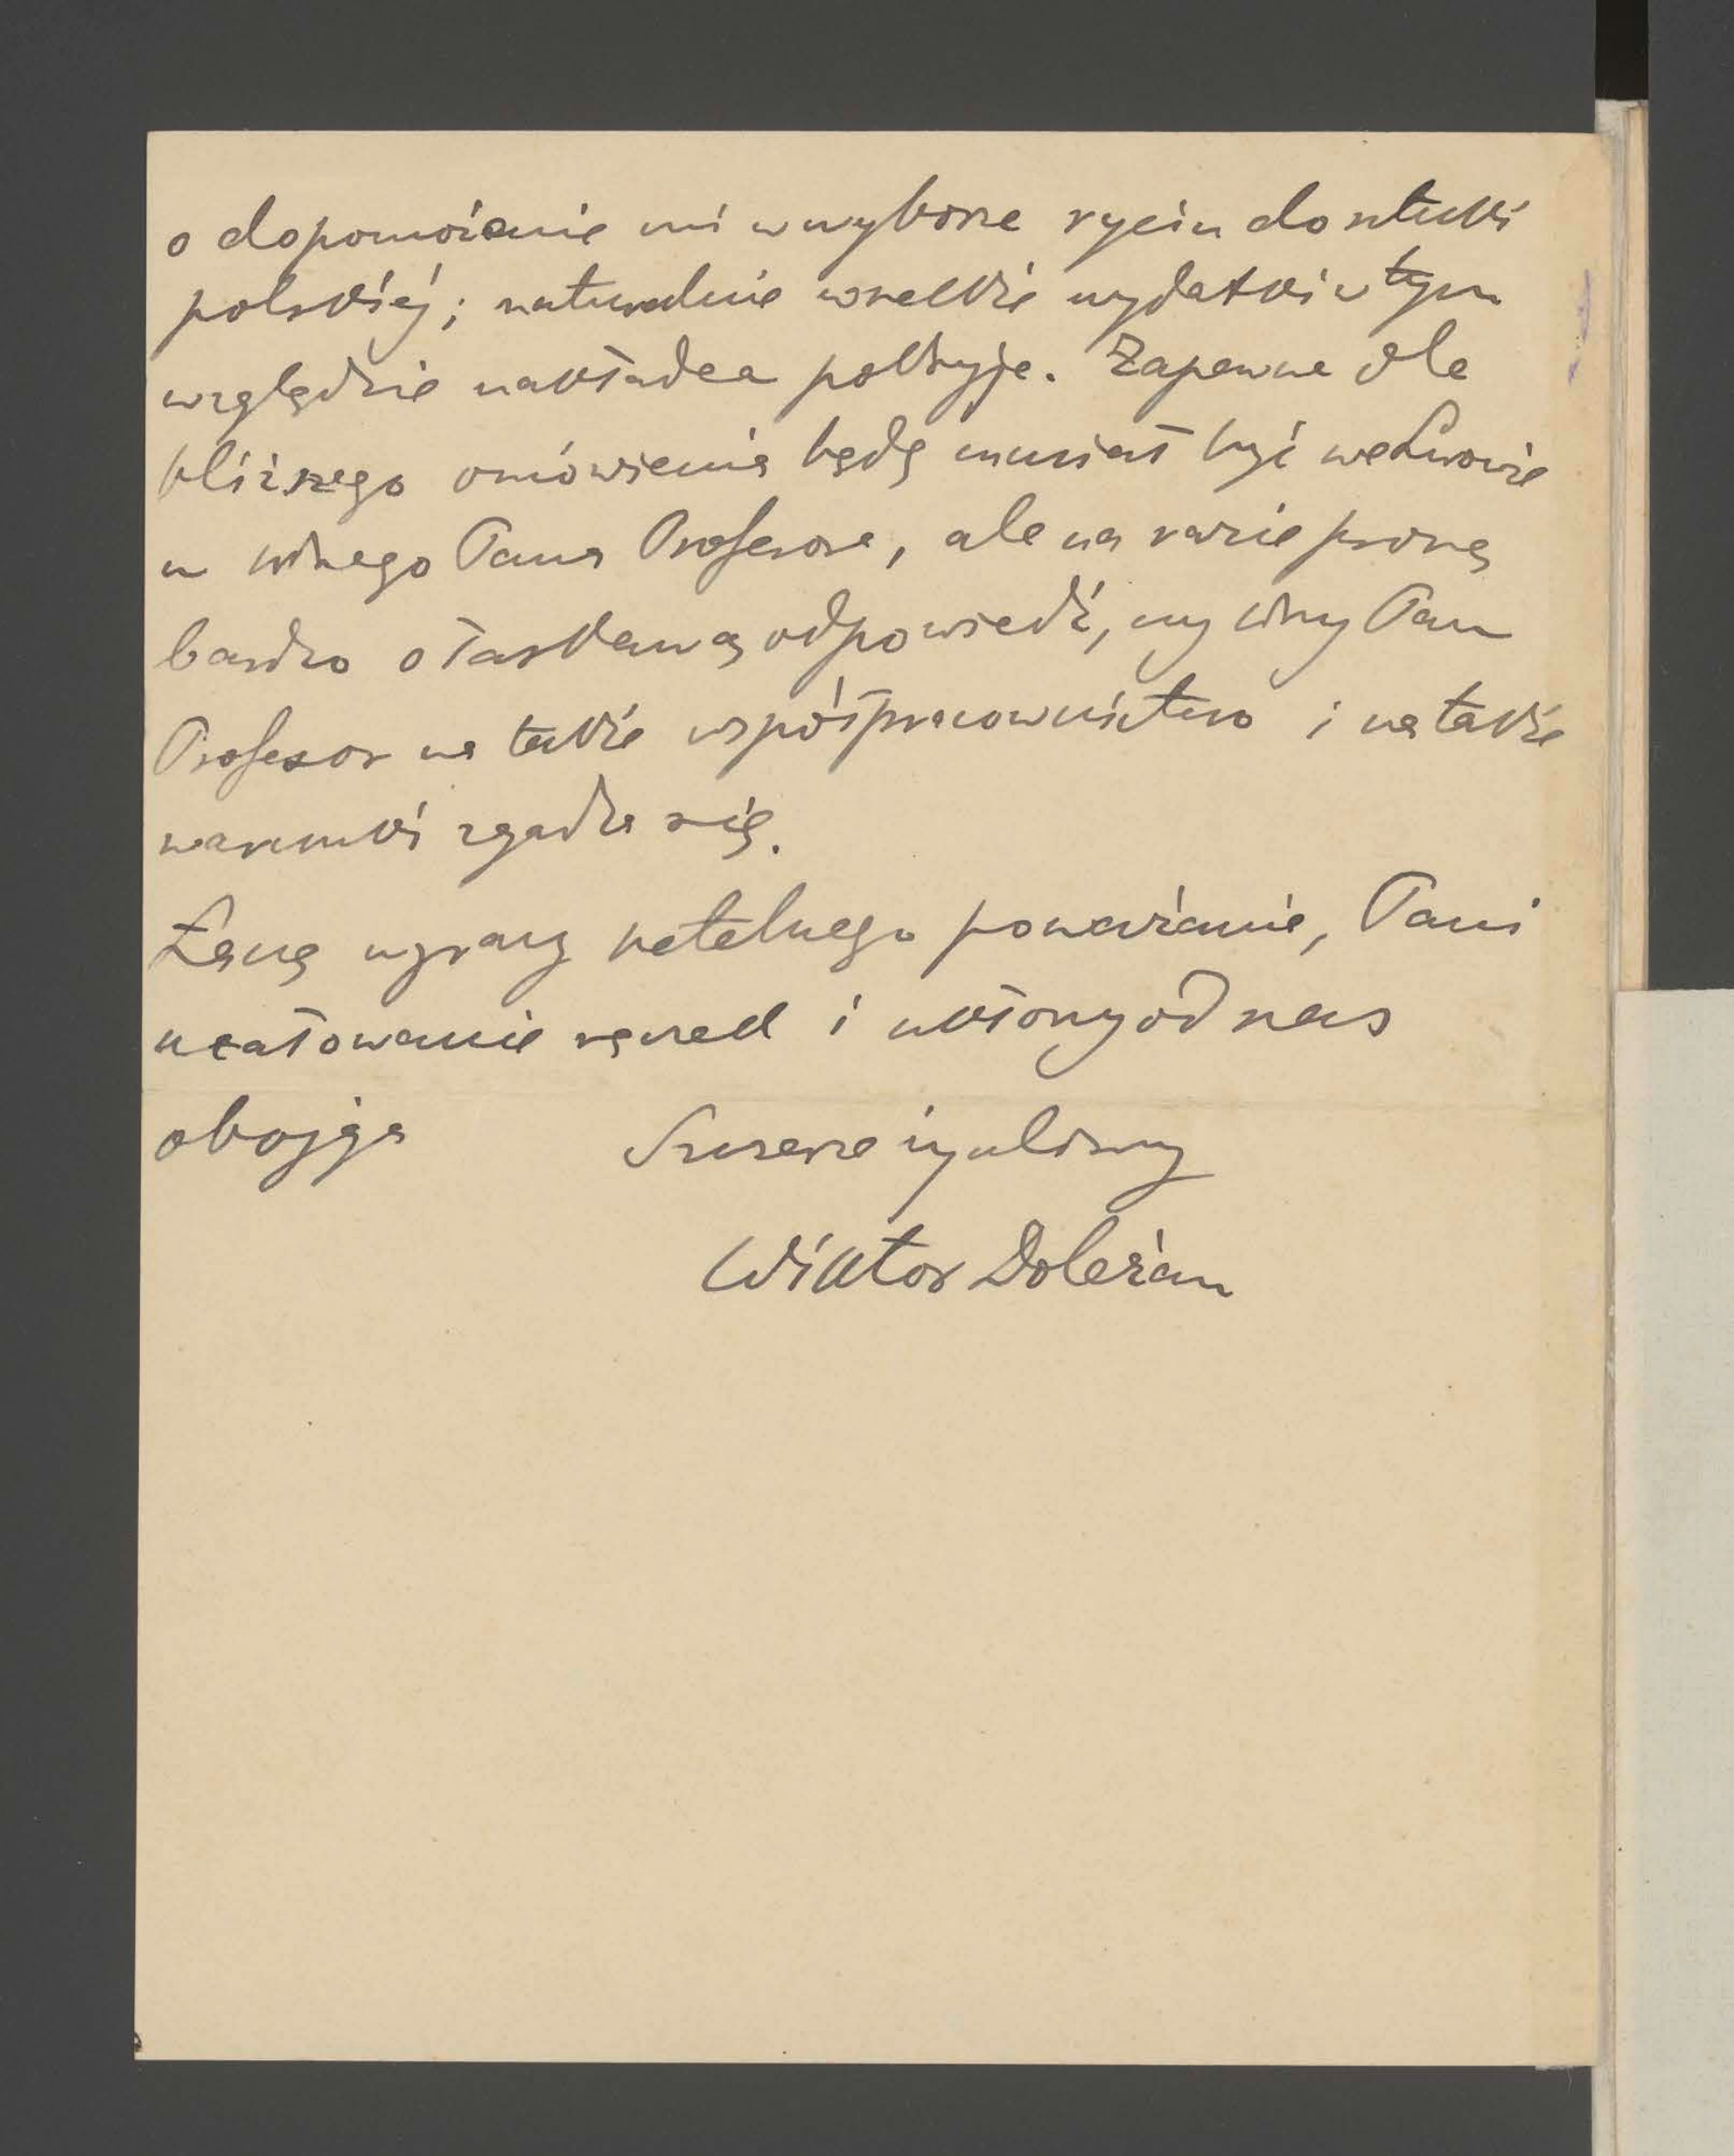 o dopomożenie mi w wyborze rycin do sztuki
polskiej; naturalnie wszelkie wydatki w tym
względzie nakładca pokryje. Zapewne dla
bliższego omówienia będę musiał być we Lwowie
u WPnego Pana Profesora, ale na razie proszę
bardzo o łaskawą odpowiedź, czy WPny Pan
Profesor na takie współpracownictwo i na takie
warunki zgadza się.
Łączę wyrazy rzetelnego poważania, Pani
ucałowanie rączek i ukłony od nas
obojga Szczerze życzliwy
Wiktor Doleżan